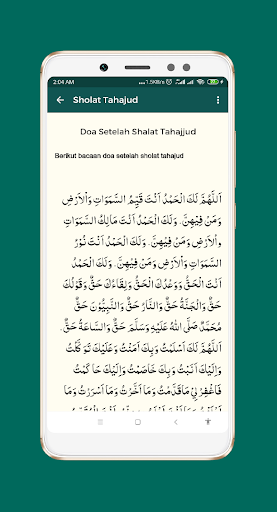 2:04 AM
1.5KB/s
Sholat Tahajud
Doa Setelah Shalat Tahajjud
Berikut bacaan doa setelah sholat tahajud
اَللّٰهُمَّ لَكَ الْحَمْدُ اَنْتَ قَيِّمُ السَّمَوَاتِ وَاْلاَرْضِ
وَمَنْ فِيْهِنَّ. وَلَكَ الْحَمْدُ اَنْتَ مَالِكُ السَّمَوَاتِ
واْلاَرْضِ وَمَنْ فِيْهِنَّ. وَلَكَ الْحَمْدُ اَنْتَ نُوْرُ
السَّمَوَاتِ وَاْلاَرْضِ وَمَنْ فِيْهِنَّ. وَلَكَ
الْحَمْدُ اَنْتَ الْحَقُّ وَوَعْدُكَ الْحَقُّ وَلِقَاءُكَ حَقٌّ وَقَوْلُكَ
حَقٌّ وَالْجَنَّةُ حَقٌّ وَالنَّارُ حَقٌّ وَالنَّبِيُّوْنَ حَقٌّ وَ
مُحَمَّدٌ صَلَّى اللهُ عَلَيْهِ وَسَلَّمَ حَقٌّ وَالسَّاعَةُ حَقٌّ.
اَللّٰهُمَّ لَكَ اَسْلَمْتُ وَبِكَ اَمَنْتُ وَعَلَيْكَ تَوَكَّلْتُ
وَاِلَيْكَ اَنَبْتُ وَبِكَ خَاصَمْتُ وَاِلَيْكَ حَاكَمْتُ
فَاغْفِرْلِيْ مَاقَدَّمْتُ وَمَا اَخَّرْتُ وَمَا اَسْرَرْتُ وَمَا